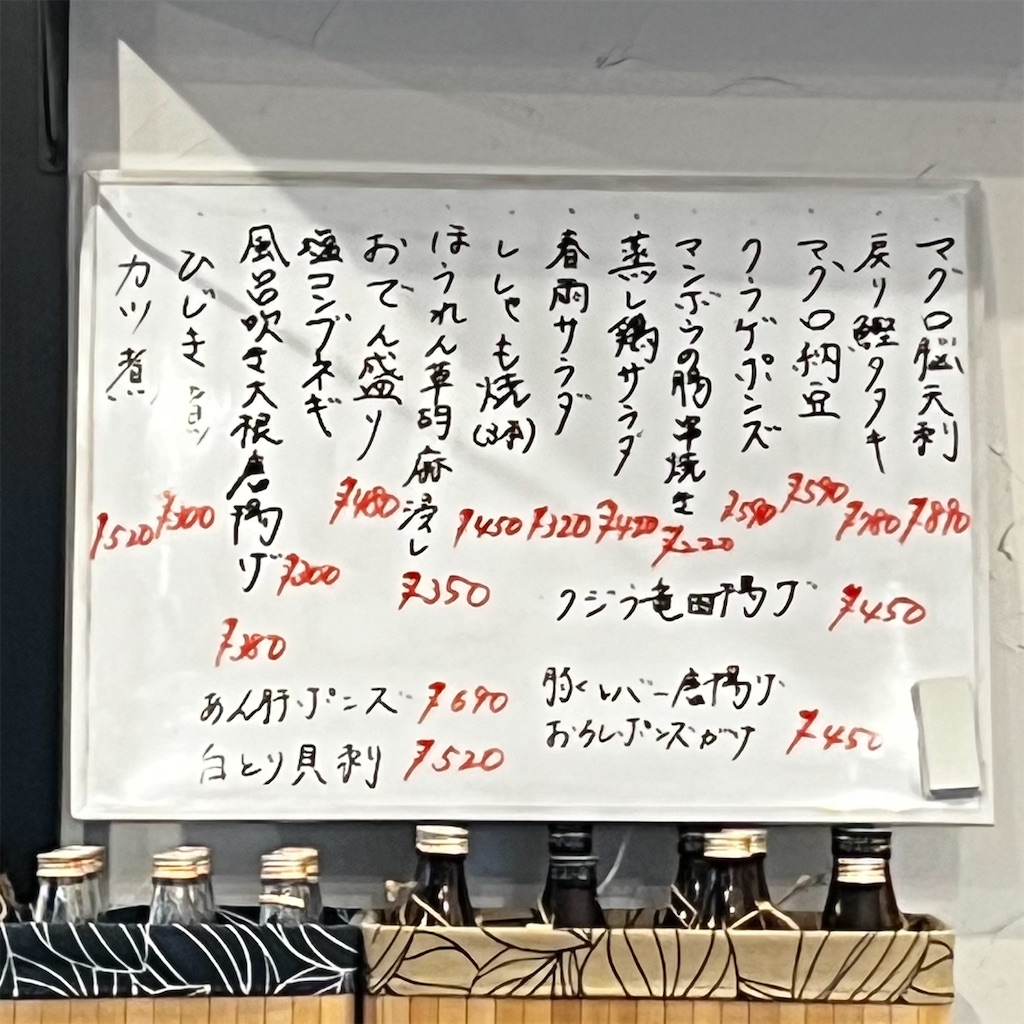 マグロ脳天刺 ¥890
戻り鰹タタキ ¥780
マグロ納豆 ¥590
クラゲポンズ ¥590
マンボウの腸串焼き ¥220
蒸し鶏サラダ ¥420
春雨サラダ ¥320
ししゃも焼(3本) ¥450
ほうれん草胡麻浸し ¥350
おでん盛り ¥480
塩コンブネギ ¥300
風呂吹き大根唐揚げ ¥380
ひじき煮 ¥300
カツ煮 ¥520
クジラ竜田揚げ ¥450
豚レバー唐揚げ
おろしポンズがけ ¥450
あん肝ポンズ ¥690
白とり貝刺 ¥520